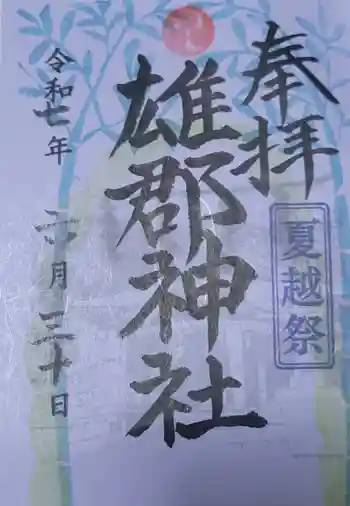 奉拝
夏越祭
雄郡神社
令和七年
六月三十日